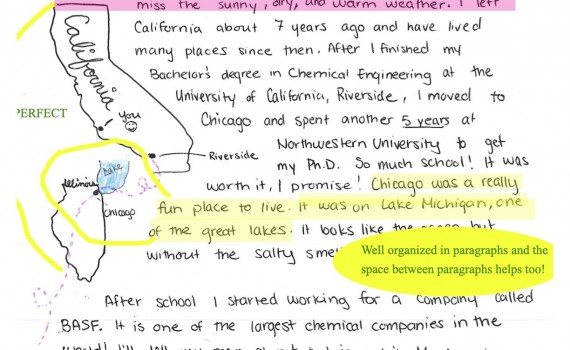 miss the sunny, dry, and warm weather. I left
California about 7 years ago and have lived
many places since then. After I finished my
Bachelor's degree in Chemical Engineering at the
University of California, Riverside, I moved to
Chicago and spent another 5 years at
Northwestern University to get
my Ph.D. So much school! It was
worth it, I promise! Chicago was a really
fun place to live. It was on Lake Michigan, one
of the great lakes. It looks like the ocean but
without the salty
After school I started working for a company called
BASF. It is one of the largest chemical companies in the
California!
PERFECT
you
Riverside
Lake
Illinois
Chicago
Well organized in paragraphs and the
space between paragraphs helps too!